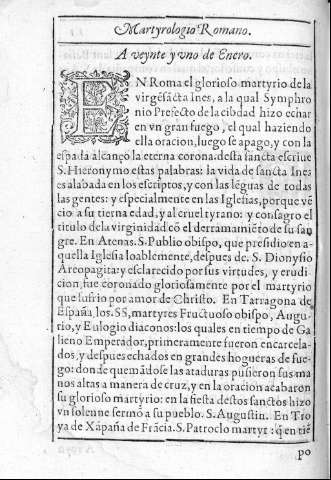 Martyrologio Romano.
A veynte y vno de Enero.
EN Roma el glorioso martyrio de la
virgẽ sãcta Ines, a la qual Symphro
nio Prefecto de la cibdad hizo echar
en vn gran fuego, el qual haziendo
ella oracion, luego se apago, y con la
espada alcanço la eterna corona. desta sancta escriue
S. Hieronymo estas palabras: la vida de sancta Ines
es alabada en los escriptos, y con las lẽguas de todas
las gentes: y especialmente en las Iglesias, porque vẽ
cio a su tierna edad, y al cruel tyrano: y consagro el
titulo de la virginidad cõ el derramamiẽto de su san
gre. En Atenas. S. Publio obispo, que presidio en a-
quella Iglesia loablemente, despues de. S. Dionysio
Areopagita: y esclarecido por sus virtudes, y erudi
cion, fue coronado gloriosamente por el martyrio
que sufrio por amor de Christo. En Tarragona de
España, los. SS, martyres Fructuoso obispo, Augu-
rio, y Eulogio diaconos: los quales en tiempo de Ga
lieno Emperador, primeramente fueron encarcela-
dos, y despues echados en grandes hogueras de fue-
go: donde quemãdose las ataduras pusieron sus ma
nos altas a manera de cruz, y en la oracion acabaron
su glorioso martyrio: en la fiesta destos sanctos hizo
vn solenne sermõ a su pueblo. S. Augustin. En Tro
ya de Xãpaña de Frãcia. S. Patroclo martyr: q̃ en tiẽ
po